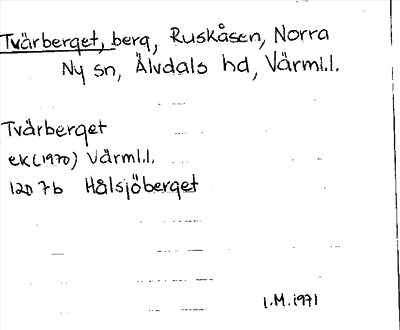 Tvärberget, berg, Ruskåsen, Norra
Ny sn, Älvdals hd, Värml.l.
Tvärberget
EK(1970) Värml.l.
12D 7b Hålsjöberget
1.M.1971